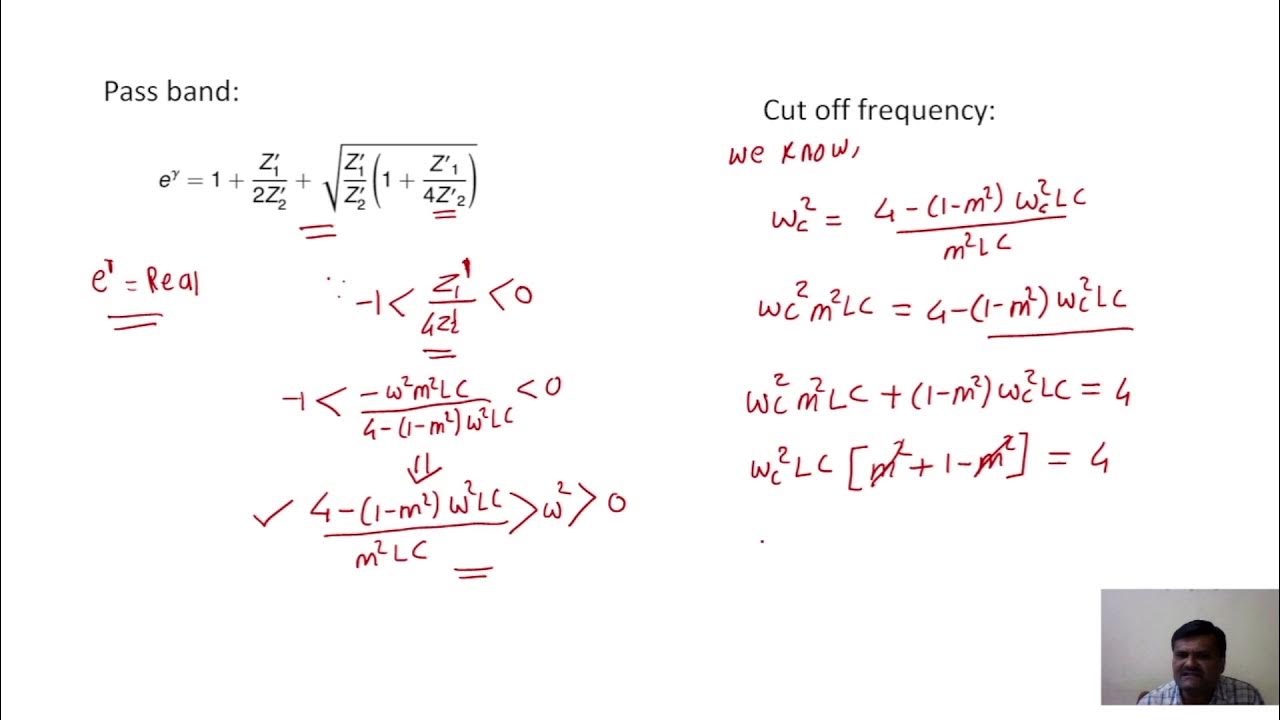 Pass band:
e^γ = 1 + Z′₁/2Z′₂ + √(Z′₁/Z′₂ (1 + Z′₁/4Z′₂))
e^γ = Real
∵ -1 < Z₁′/4Z₂′ < 0
-1 < -ω²m²LC/4-(1-m²)ω²LC < 0
⇓
✓ 4-(1-m²)ω²LC/m²LC > ω² > 0
Cut off frequency:
we know,
ωc² = 4-(1-m²)ωc²LC/m²LC
ωc²m²LC = 4-(1-m²)ωc²LC
ωc²m²LC + (1-m²)ωc²LC = 4
ωc²LC [m²+1-m²] = 4